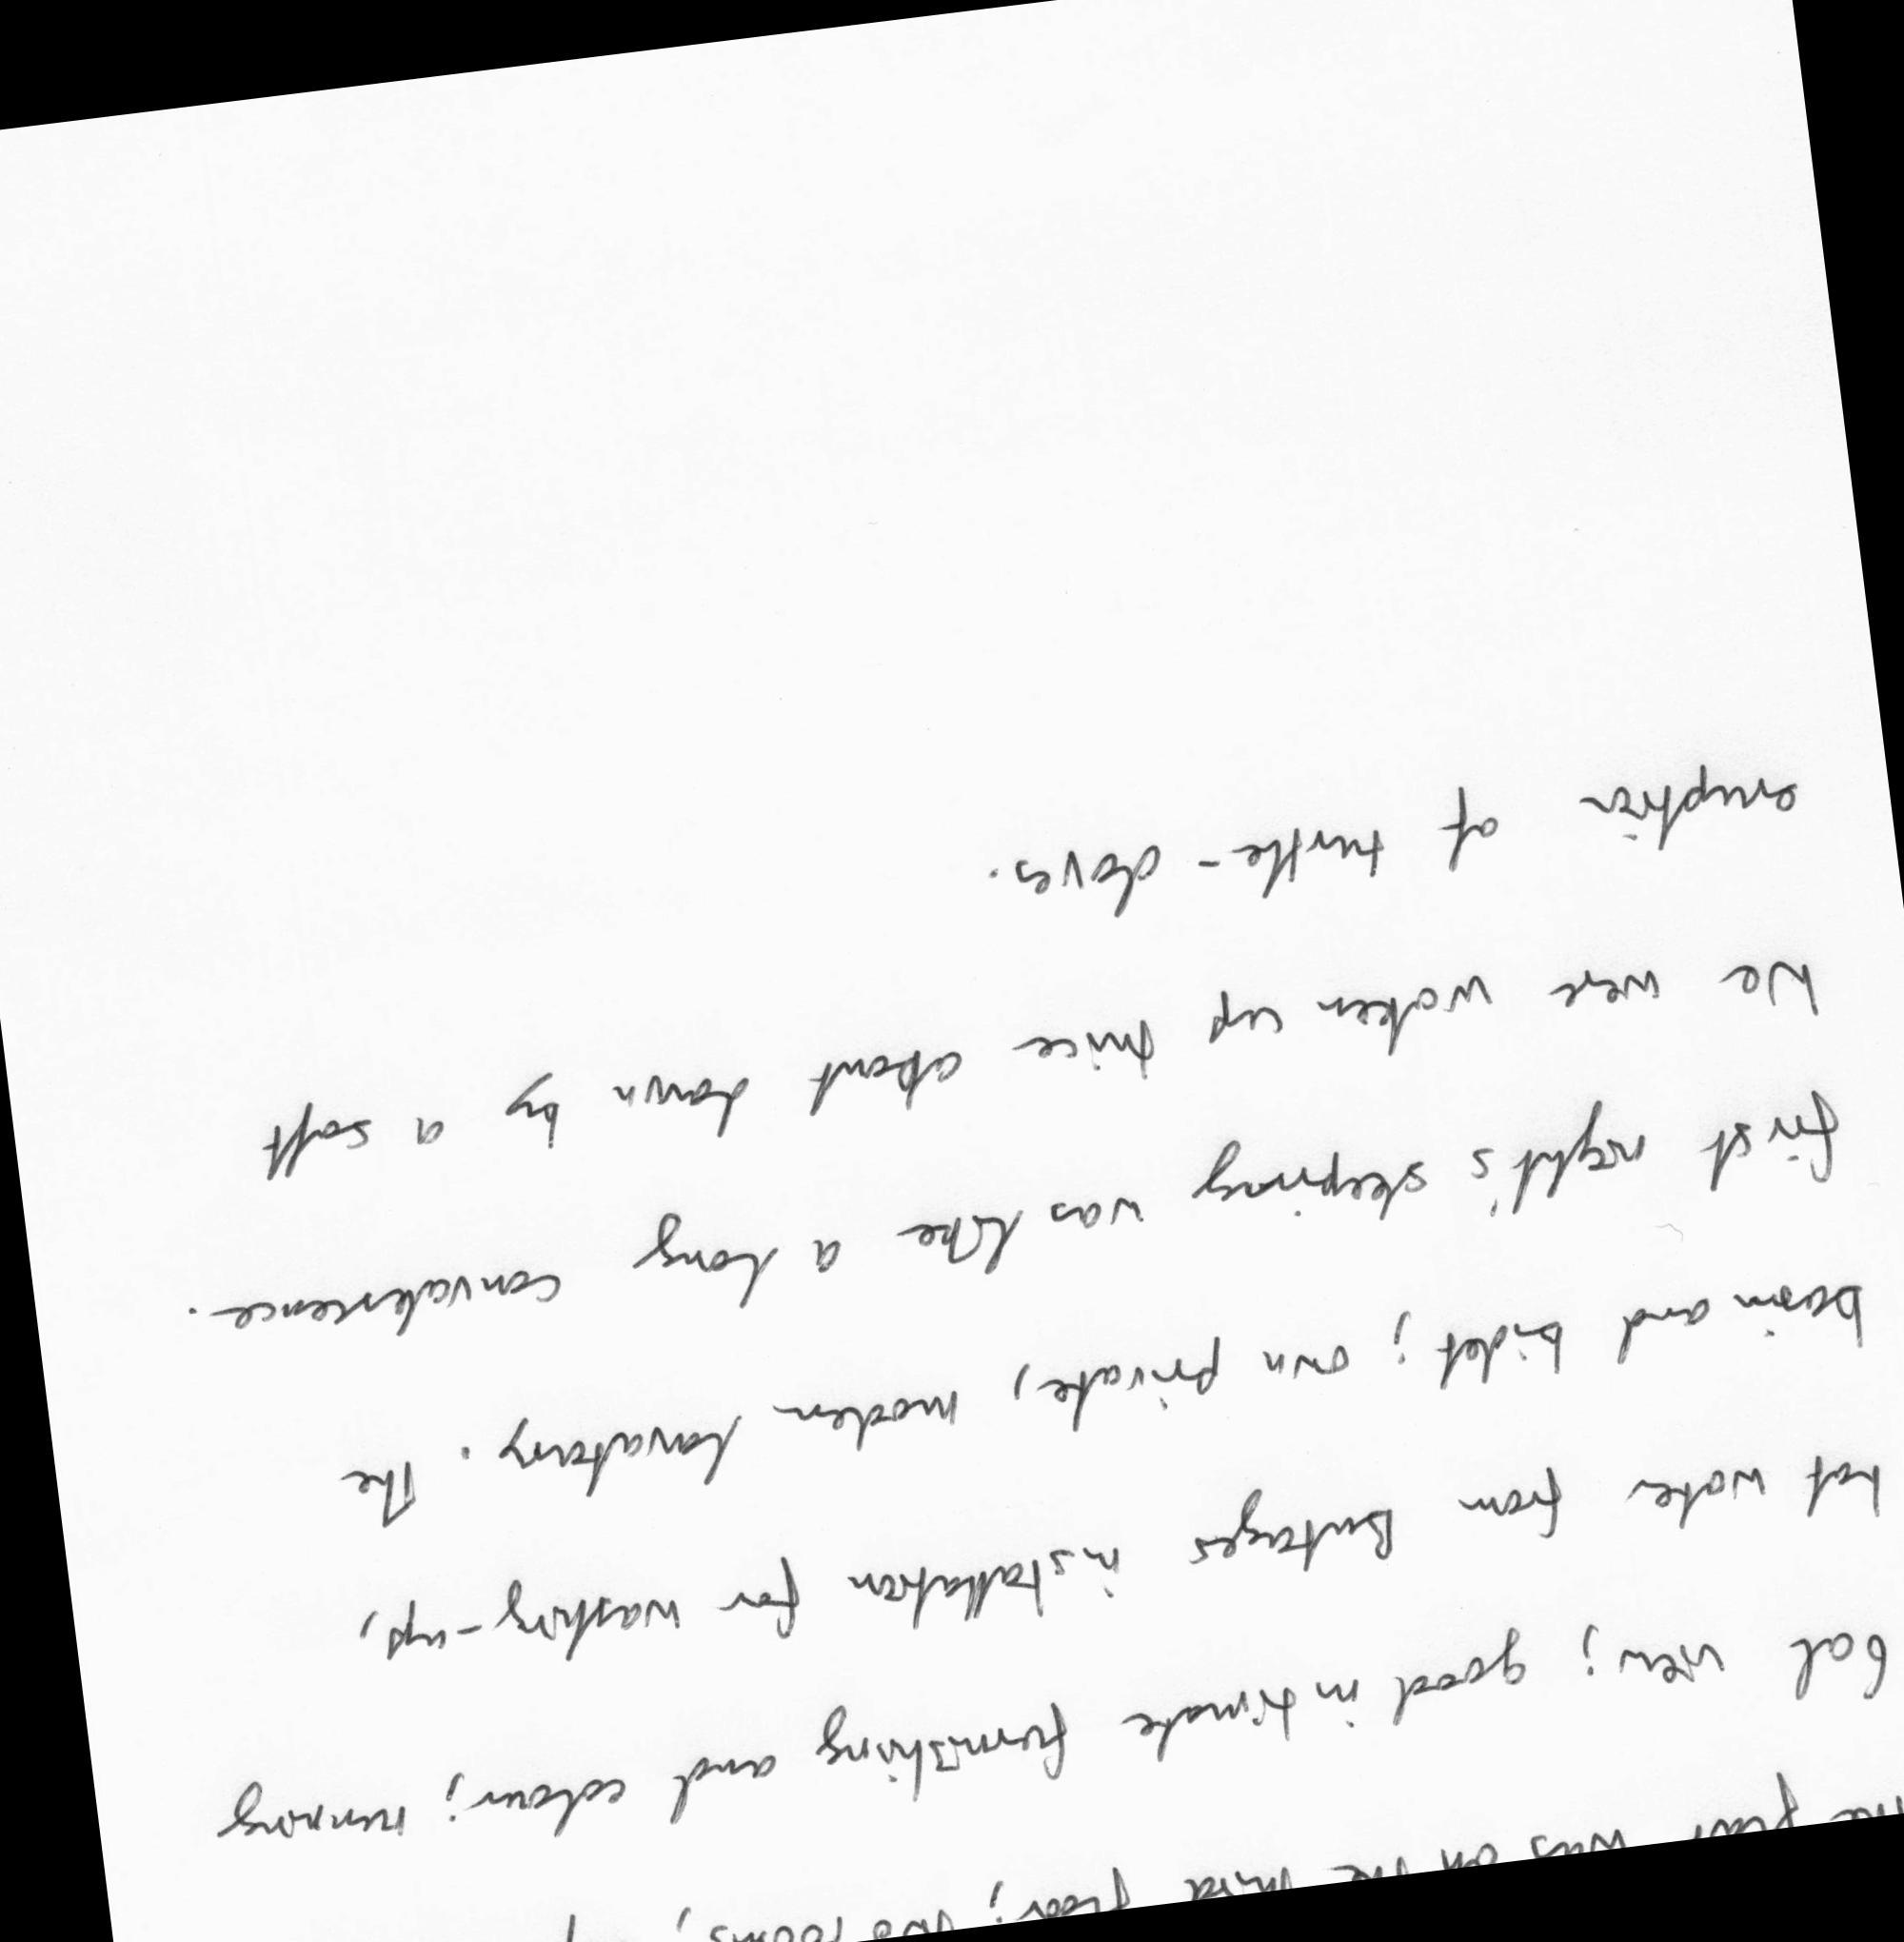 The flat was on the third floor; two rooms,
6al view; good intimate furnishing and colour; running
hot water from Butages installation for washing-up,
basin and bidet; own private, modern lavatory. The
first night's sleeping was like a long convalescence.
We were woken up twice about dawn by a soft
eruption of turtle-doves.